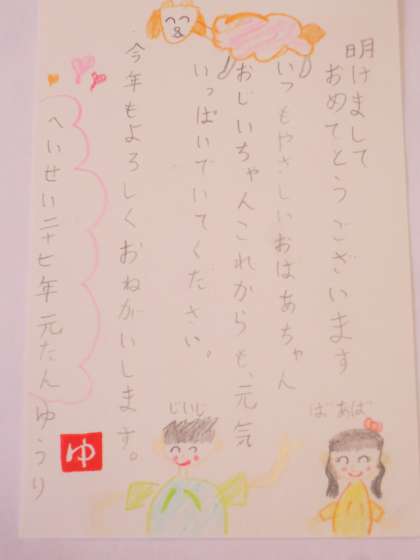 明けまして
おめでとうございます
いつもやさしいおばあちゃん
おじいちゃんこれからも、元気
いっぱいでいてください。
今年もよろしくおねがいします。
へいせい二十七年 元たん ゆうり
ゆ
じいじ
ばあば